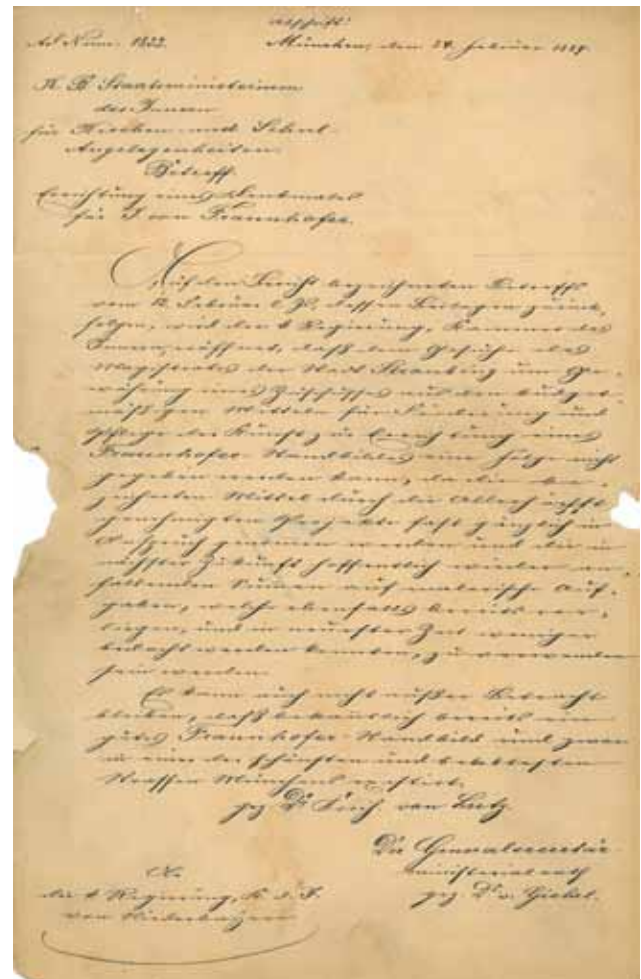 Abschrift!
Ad Num. 1822. München, den 24. Februar 1887.
K. B. Staatsministerium
des Innern
für Kirchen- und Schul-
Angelegenheiten.
Betreff.
Errichtung eines Denkmales
für J. von Fraunhofer.
Auf den Bericht bezeichneten Betreffs
vom 12. Februar l. Js., dessen Beilagen zurück-
folgen, wird der k. Regierung, Kammer des
Innern, eröffnet, daß dem Gesuche des
Magistrates der Stadt Straubing um Ge-
währung eines Zuschusses aus den budget-
mäßigen Mitteln für Förderung und
Pflege der Kunst zur Errichtung eines
Fraunhofer-Standbildes eine Folge nicht
gegeben werden kann, da die be-
zeichneten Mittel durch die Allerhöchst
genehmigten Projekte fast gänzlich in
Anspruch genommen werden und die in
nächster Zukunft hoffentlich wieder an-
fallenden Summen auf malerische Auf-
gaben, welche ebenfalls bereits vor-
liegen, und in neuester Zeit weniger
bedacht werden konnten, zu verwenden
sein werden.
Es kann auch nicht außer Betracht
bleiben, daß bekanntlich bereits ein
gutes Fraunhofer-Standbild und zwar
in einer der schönsten und belebtesten
Strassen Münchens existirt.
gez. Dr. Frhr. von Lutz.
Der Generalsecretär
Ministerialrath
gez. Dr. v. Giehrl.
An
die k. Regierung, K. d. I.
von Niederbayern